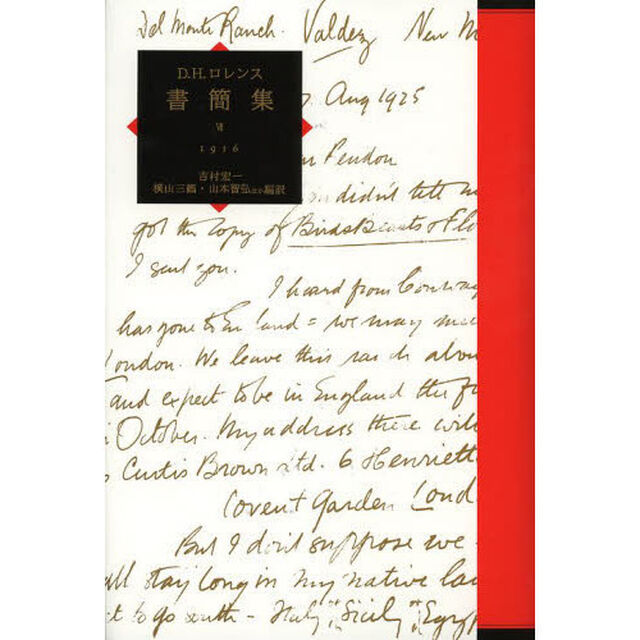 Del Monte Ranch. Valdez New M
Aug 1925
D.H.ロレンス
書簡集
Ⅶ
1916
吉村宏一
横山三鶴・山本智弘ほか編訳
Pendon
didn't tell me
got the copy of Birds Beasts & Flo
I sent you.
I heard from Conway
has gone to England = we may mee
London. We leave this ranch abou
and expect to be in England the fi
October. My address there will
Curtis Brown Ltd. 6 Henriett
Covent Garden Lond
But I don't suppose we
all stay long in my native lan
to go south - Italy or Sicily or Egyp